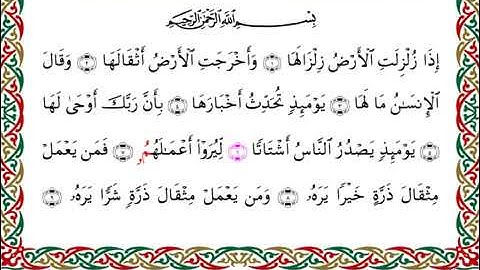 بِسْمِ ٱللَّهِ ٱلرَّحْمَٰنِ ٱلرَّحِيمِ
إِذَا زُلْزِلَتِ ٱلْأَرْضُ زِلْزَالَهَا ١ وَأَخْرَجَتِ ٱلْأَرْضُ أَثْقَالَهَا ٢ وَقَالَ
ٱلْإِنسَٰنُ مَا لَهَا ٣ يَوْمَئِذٍ تُحَدِّثُ أَخْبَارَهَا ٤ بِأَنَّ رَبَّكَ أَوْحَىٰ لَهَا
٥ يَوْمَئِذٍ يَصْدُرُ ٱلنَّاسُ أَشْتَاتًا ٦ لِّيُرَوْا۟ أَعْمَٰلَهُمُۥ ٧ فَمَن يَعْمَلْ
مِثْقَالَ ذَرَّةٍ خَيْرًا يَرَهُۥ ٨ وَمَن يَعْمَلْ مِثْقَالَ ذَرَّةٍ شَرًّا يَرَهُۥ ٩